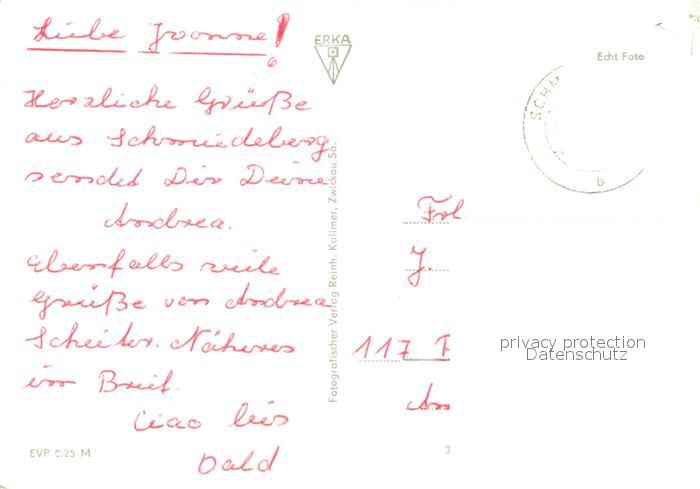 Liebe Ivonne!
Herzliche Grüße
aus Schmiedeberg
sendet Dir Deine
Andrea.
Ebenfalls viele
Grüße von Andrea
Näheres
im Brief.
Ciao bis
bald
EVP 0,25 M
ERKA
Fotografischer Verlag Reinh. Kallmer, Zwickau, Sa.
Echt Foto
SCHM
b
Frl
J.
117
privacy protection
Datenschutz
3